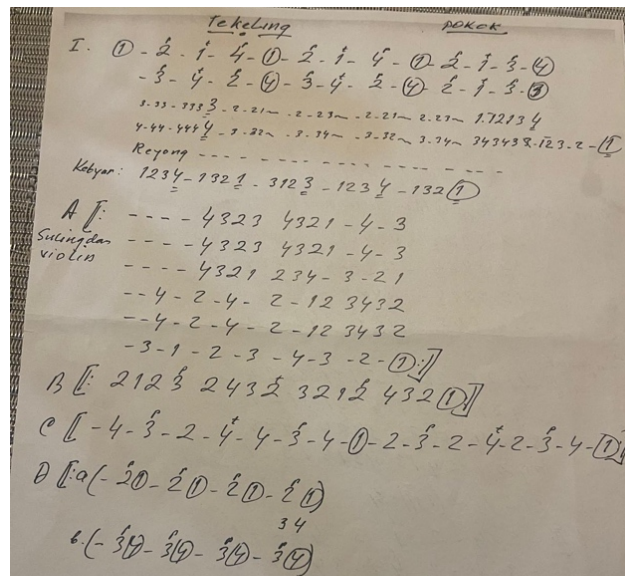 Tekeling pokok
I. ① - 2 - 1 - 4 - ① - 2 - 1 - 4 - ① - 2 - 1 - 3 - ④
- 3 - 4 - 2 - ④ - 3 - 4 - 2 - ④ - 2 - 1 - 3 - ③
3-33-333 3 - 2-21 - 2-23 - 2-21 - 2-23 1.12134
4-44-444 4 - 3-32 - 3-34 - 3-32 3-34 343438-123-2-①
Reyong - - - - - - - - - - - -
Kebyar: 1234 - 1321 - 3123 - 1234 - 132①
A [: - - - - 4323 4321 - 4 - 3
Suling dan - - - - 4323 4321 - 4 - 3
violin - - - - 4321 234 - 3 - 21
- - 4 - 2 - 4 - 2 - 12 3432
- - 4 - 2 - 4 - 2 - 12 3432
- 3 - 1 - 2 - 3 - 4 - 3 - 2 - ① :]
B [: 2123 2432 3212 432① :]
C [ - 4 - 3 - 2 - 4 - 4 - 3 - 4 - ① - 2 - 3 - 2 - 4 - 2 - 3 - 4 - ① :]
D [: a ( - 2① - 2① - 2① - 2① )
34
b. ( - 3④ - 3④ - 3④ - 3④ )